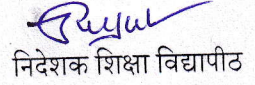 निदेशक शिक्षा विद्यापीठ